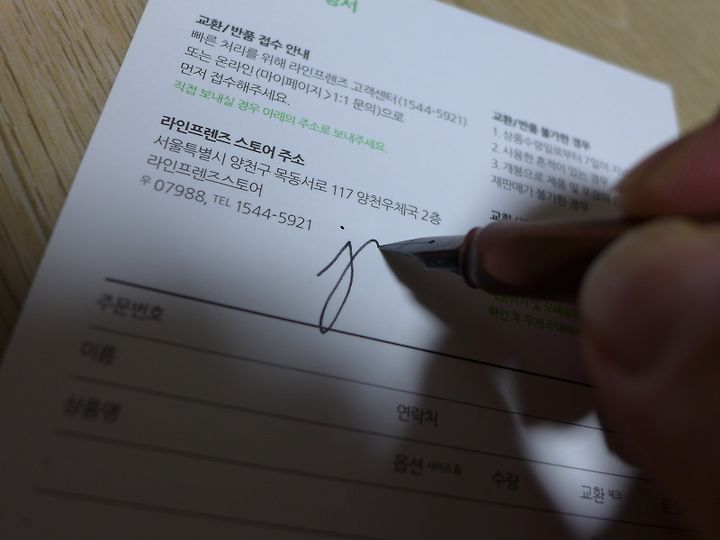 교환/반품 접수 안내
빠른 처리를 위해 라인프렌즈 고객센터(1544-5921)
또는 온라인(마이페이지 > 1:1 문의)으로
먼저 접수해주세요.
직접 보내실 경우 아래의 주소로 보내주세요.
라인프렌즈 스토어 주소
서울특별시 양천구 목동서로 117 양천우체국 2층
라인프렌즈스토어
우 07988, TEL 1544-5921
교환/반품 불가한 경우
1. 상품수령일로부터 7일이
2. 사용한 흔적이 있는 경우
3. 개봉으로 제품 및 포장의
재판매가 불가한 경우
교환/
확인 후 우체국택배
주문번호
이름
연락처
상품명
옵션 사이즈 등
수량
교환 체크